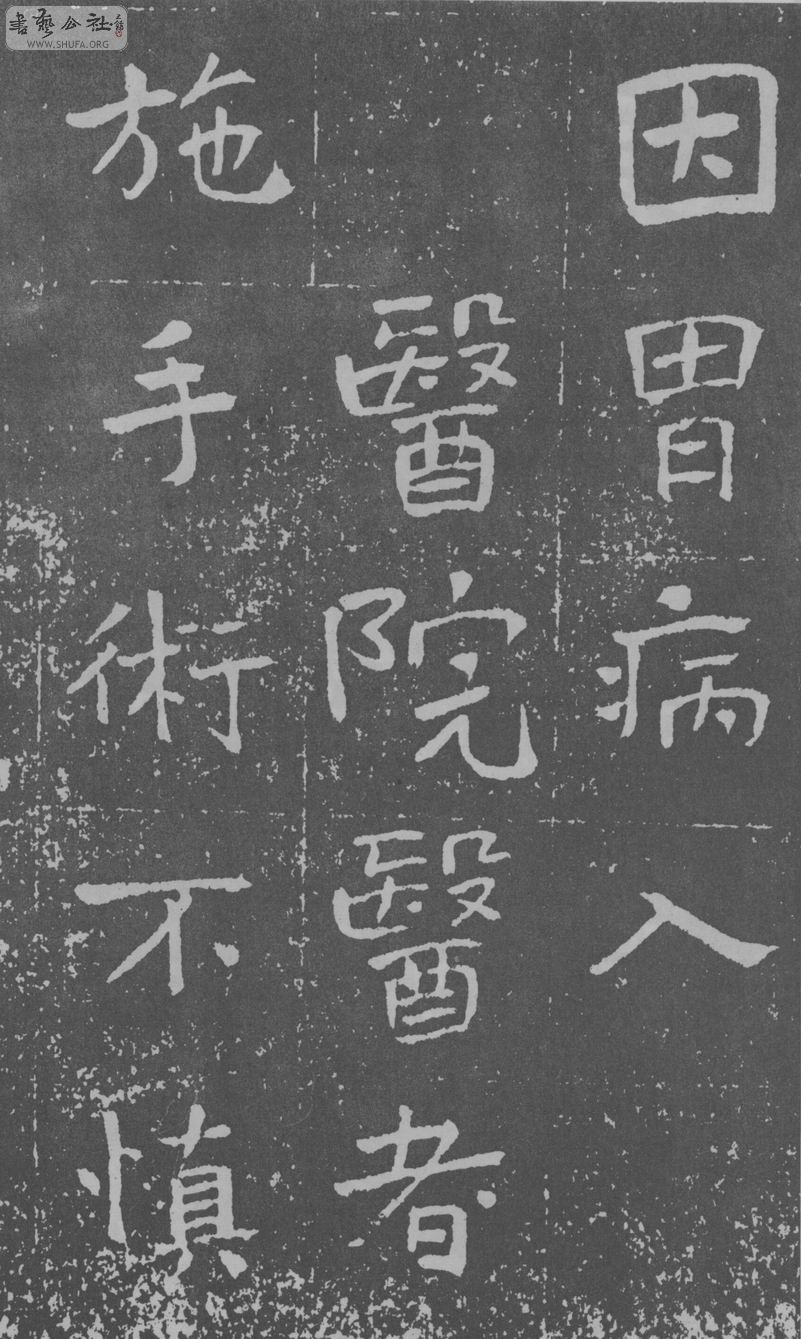 因胃病入
醫院醫者
施手術不慎
書藝公社
WWW.SHUFA.ORG